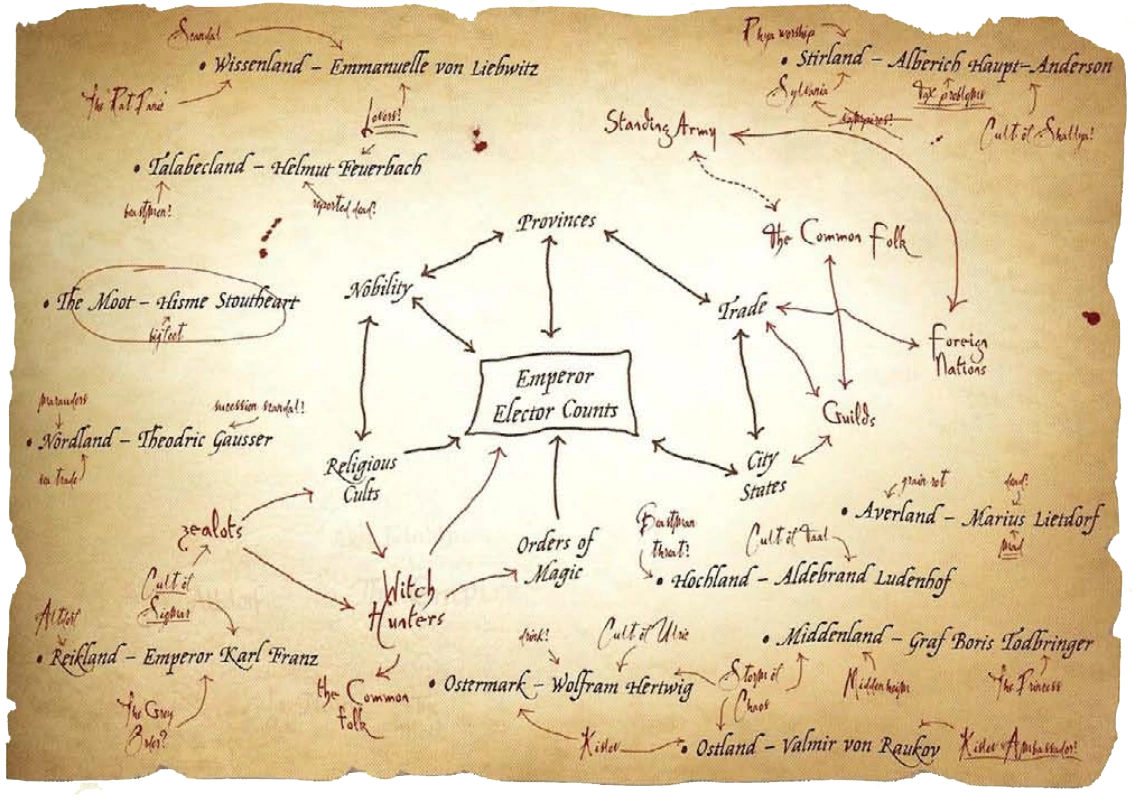 Scandal
• Wissenland – Emmanuelle von Liebwitz
The Rat Panic
Lovers!
• Talabecland – Helmut Feuerbach
beastmen!
reported dead?
• The Moot – Hisme Stoutheart
big feet
marauders
sucession scandal!
• Nordland – Theodric Gausser
sea trade
Rhya worship
• Stirland – Alberich Haupt-Anderson
Sylvania
tax problems
vampires!
Cult of Shallya!
Standing Army
The Common Folk
Provinces
Nobility
Trade
Foreign
Nations
Emperor
Elector Counts
Guilds
Religious
Cults
City
States
Orders of
Magic
zealots
Witch
Hunters
the Common
folk
Cult of
Sigmar
Altdorf
• Reikland – Emperor Karl Franz
The Grey
Order?
grain rot
dead?
• Averland – Marius Lietdorf
mad
Beastman
threat!
Cult of Taal
• Hochland – Aldebrand Ludenhof
• Middenland – Graf Boris Todbringer
Middenheim
The Princess
drink!
Cult of Ulric
• Ostermark – Wolfram Hertwig
Storm of
Chaos
Kislev
• Ostland – Valmir von Raukov
Kislev Ambassador!